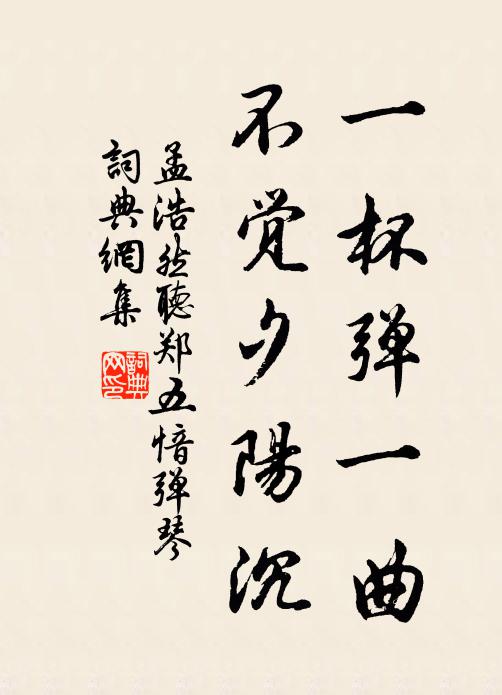 一杯弹一曲
不觉夕陽沉
孟浩然聽郑五愔弹琴
詞典網集
詞典网印